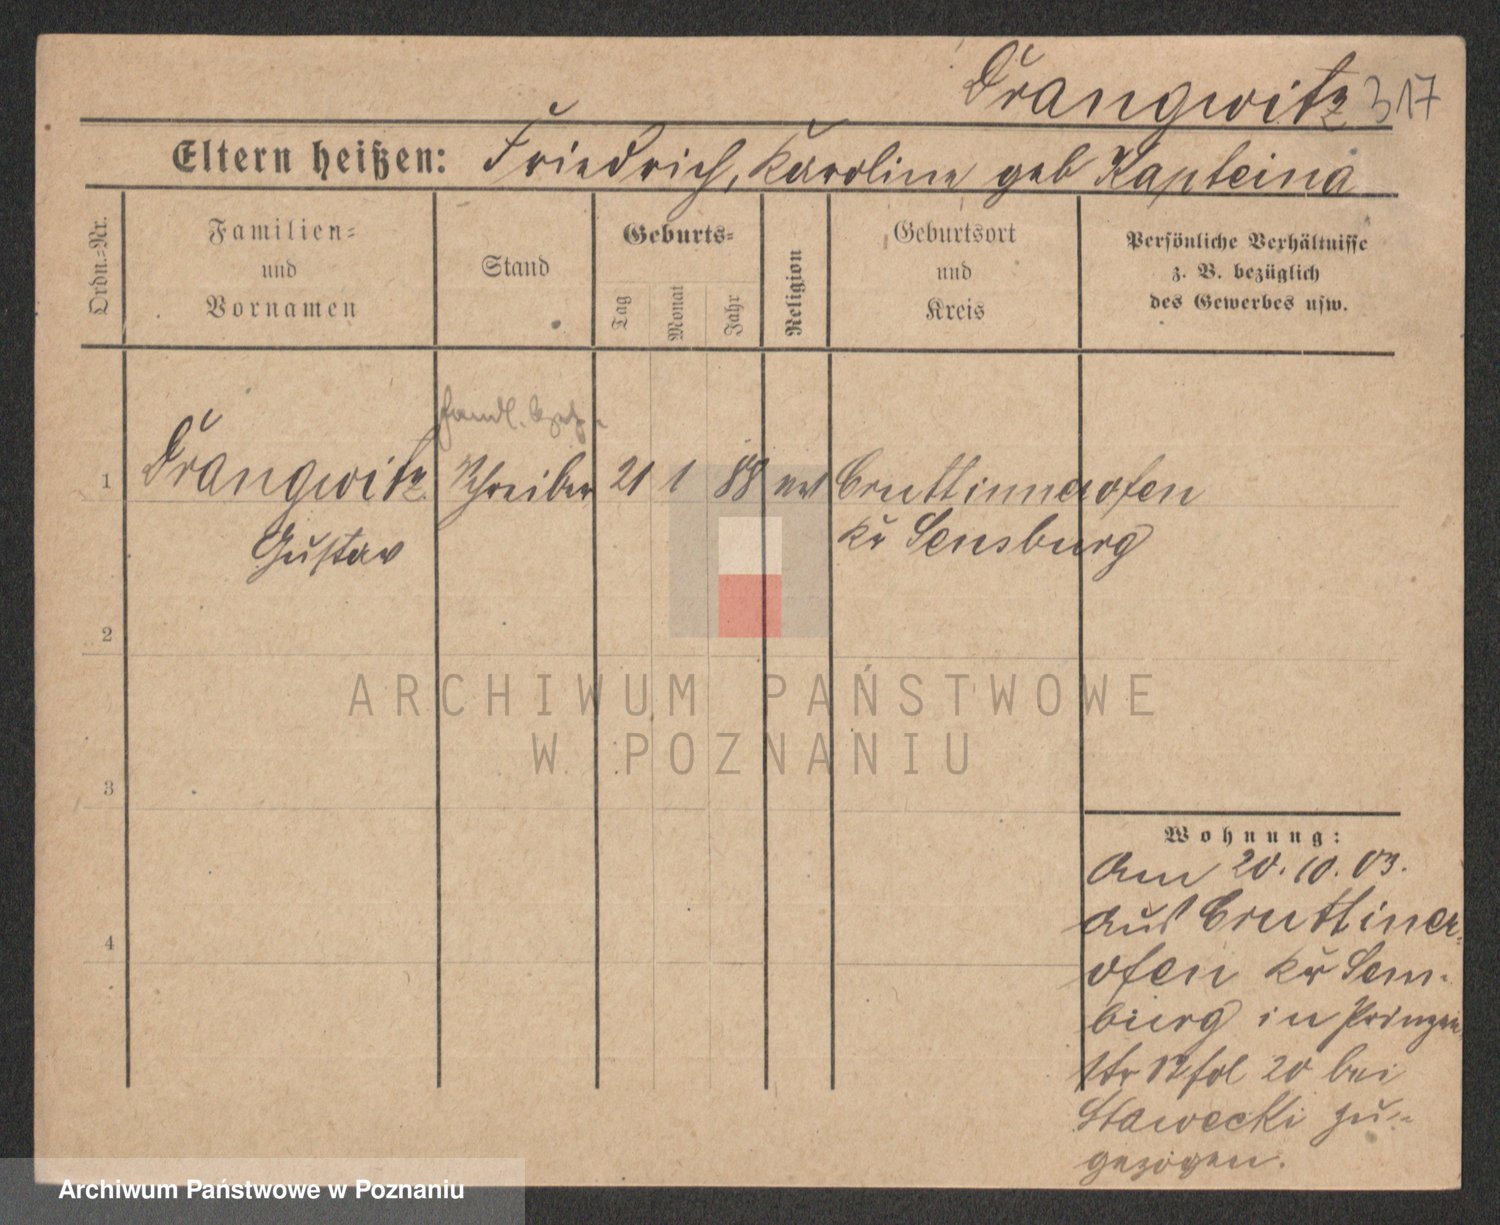 Drangwitz 317
Eltern heißen: Friedrich, Karoline geb Kapteina
Ordn.-Nr.
Familien-
und
Vornamen
Stand
Geburts-
Tag
Monat
Jahr
Religion
Geburtsort
und
Kreis
Persönliche Verhältnisse
z. B. bezüglich
des Gewerbes usw.
Handl.
1 Drangwitz Schreiber 21 1 88 ev Cruttinnerofen
Gustav Kr Sensburg
2
3
4
ARCHIWUM PAŃSTWOWE
W POZNANIU
Wohnung:
Am 20.10.03.
aus Cruttiner-
ofen Kr Sens-
burg in Prinzen
str 20 bei
Stawecki zu-
gezogen.
Archiwum Państwowe w Poznaniu